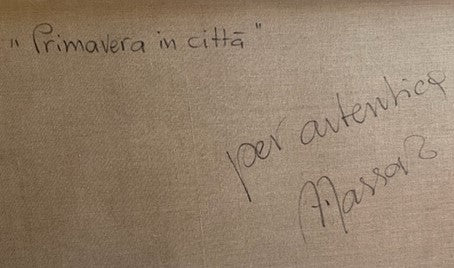 "Primavera in città"
per autentica